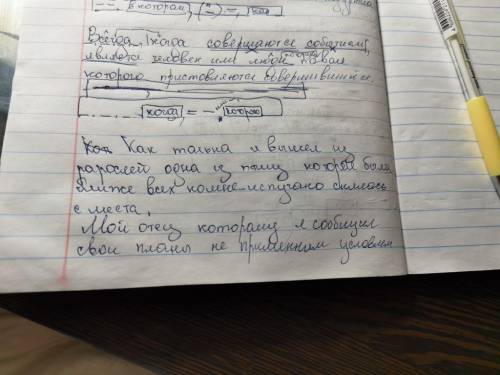 == в котором, (") =, как
Всегда, когда совершаются события,
является человек или люди по воле
которого представляются совершившимся.
когда = - которою
Как только я вышел из
зарослей одна из птиц которой была
ближе всех комне испугано снялась
с места,
Мой отец которому я сообщил
свои планы не применим условием